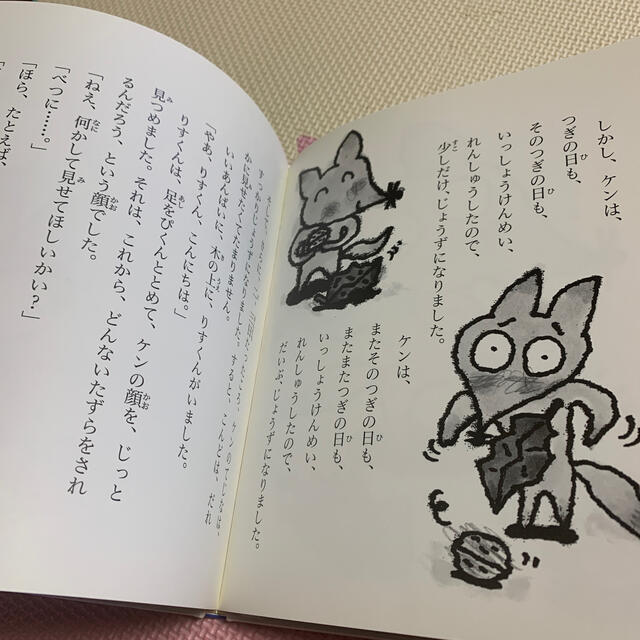 しかし、ケンは、
つぎの日も、
そのつぎの日も、
いっしょうけんめい、
れんしゅうしたので、
少しだけ、じょうずになりました。
ケンは、
またそのつぎの日も、
またまたつぎの日も、
いっしょうけんめい、
れんしゅうしたので、
だいぶ、じょうずになりました。
すっかりじょうずになりました。すると、こんどは、だれ
かに見せたくてたまりません。
いいあんばいに、木の上に、りすくんがいました。
「やあ、りすくん、こんにちは。」
りすくんは、足をぴくんととめて、ケンの顔を、じっと
見つめました。それは、これから、どんないたずらをされ
るんだろう、という顔でした。
「ねえ、何かして見せてほしいかい?」
「べつに……。」
「ほら、たとえば、